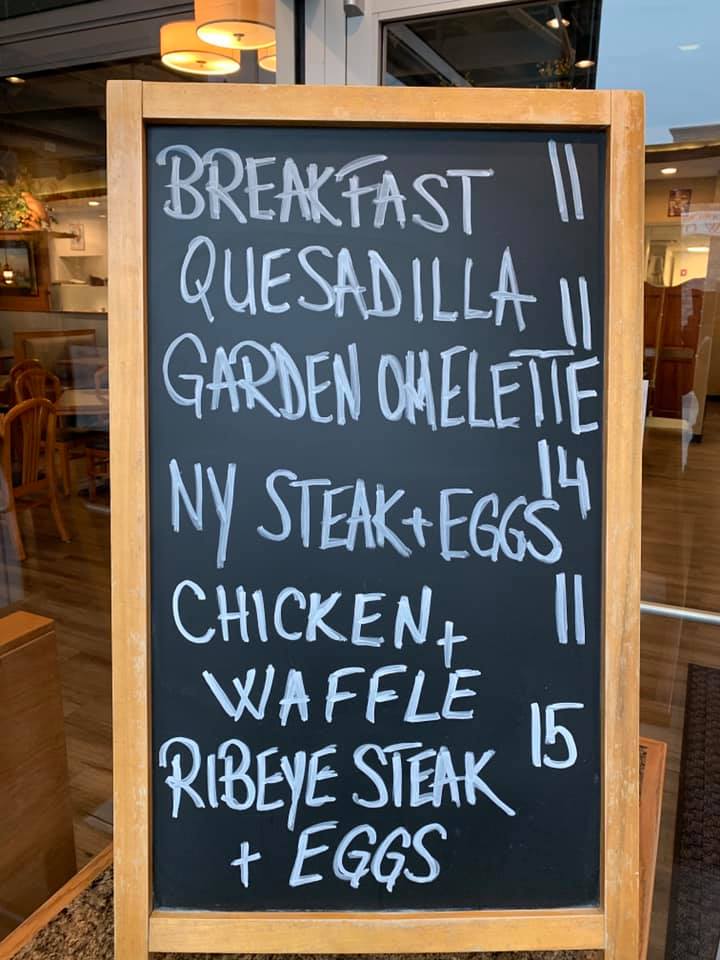 BREAKFAST 11
QUESADILLA
11
GARDEN OMELETTE
14
NY STEAK + EGGS
CHICKEN + 11
WAFFLE
15
RIBEYE STEAK
+ EGGS